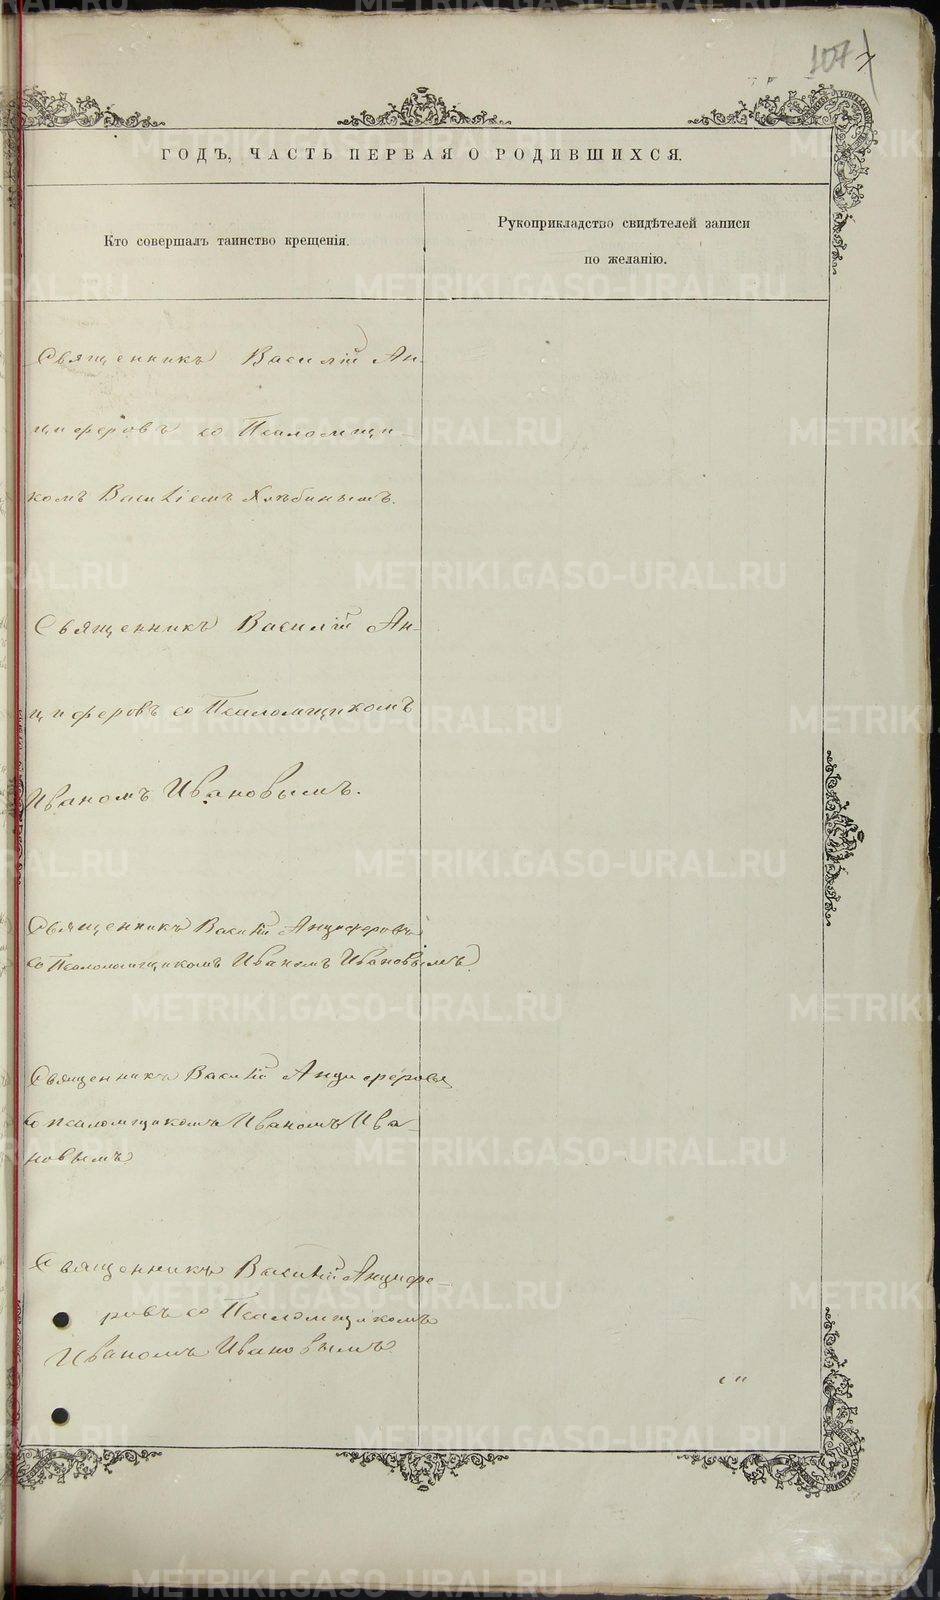 107
7
ГОДЪ, ЧАСТЬ ПЕРВАЯ О РОДИВШИХСЯ.
Кто совершалъ таинство крещенія.
Рукоприкладство свидѣтелей записи
по желанію.
Священникъ Василій Ан-
циферовъ со Псаломщи-
комъ Василіемъ Хлѣбинымъ.
Священникъ Василій Ан-
циферовъ со Псаломщикомъ
Иваномъ Ивановымъ.
Священникъ Василій Анциферовъ
со Псаломщикомъ Иваномъ Ивановымъ.
Священникъ Василій Анциферовъ
со псаломщикомъ Иваномъ Ива-
новымъ
Священникъ Василій Анцифе-
ровъ со Псаломщикомъ
Иваномъ Ивановымъ
METRIKI.GASO-URAL.RU